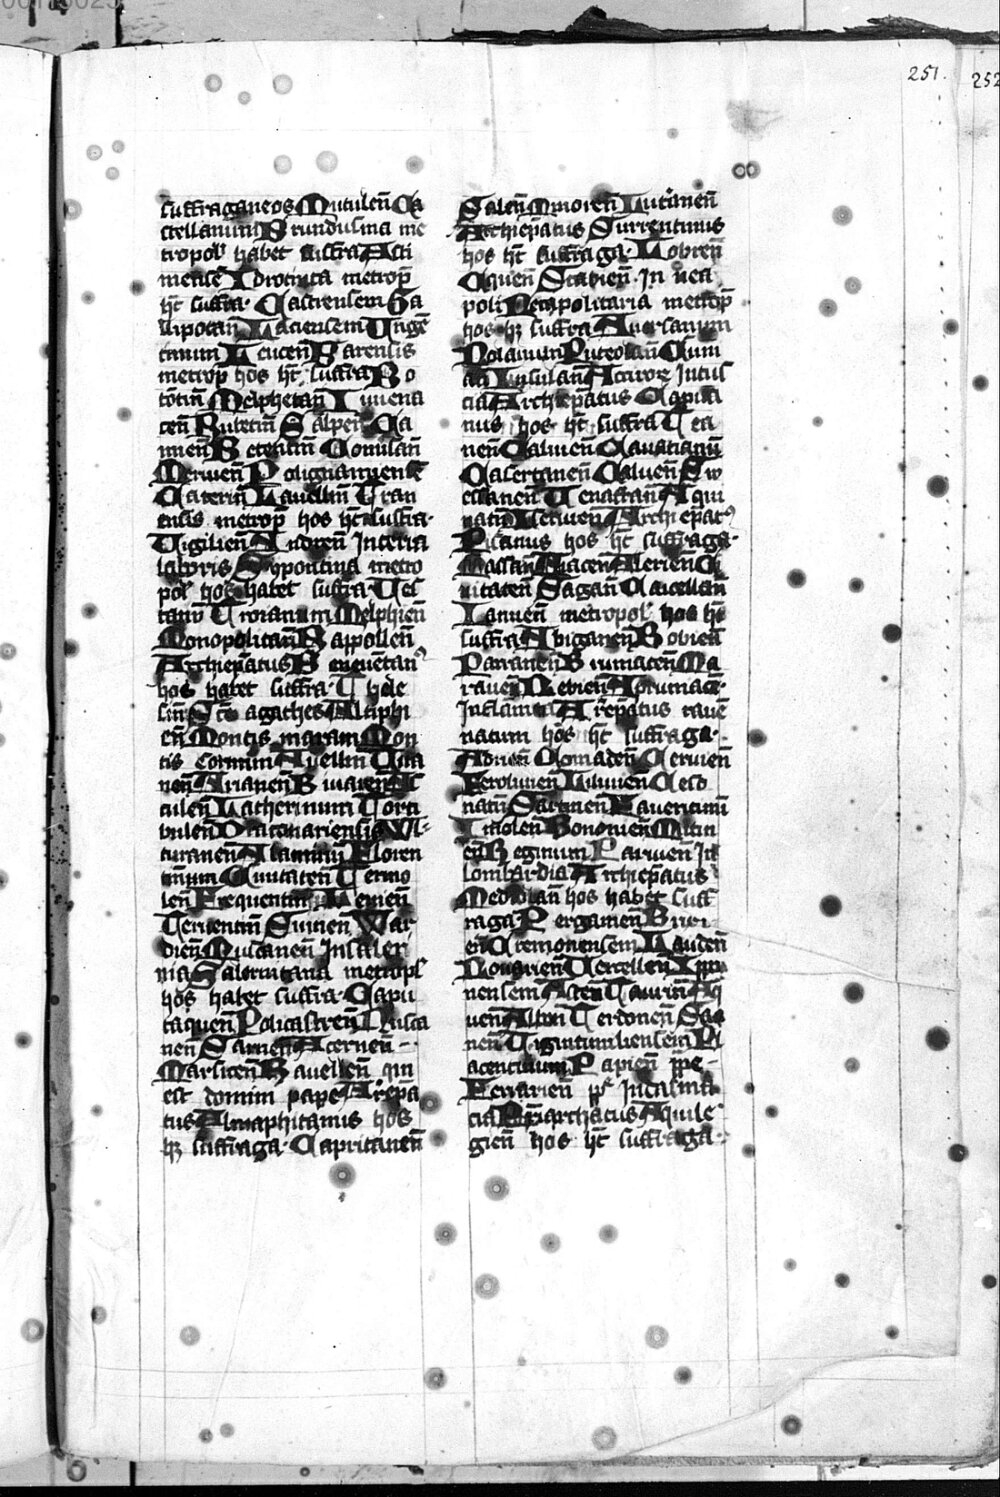 251.
252
suffraganeos Mutulen̄ Ca
stellanum Brundusina me
tropol̕ habet suffra Asti
mense Idrotinta metrop̄
h̄t suffra· Castrensem Ga
llipotan̄ Laciensem Ungē
tinum Leucen̄ Barensis
metrop̄ hos h̄t suffra Bo
tōtin̄ Melphetan̄ Iuuena
cen̄ Rubetin̄ Salpen̄ Ca
nnen̄ Betentin̄ Conulan̄
Meruen̄ Polignanēnsē
Caterin̄ Lauellin̄ Tran
ensis metrop̄ hos h̄t suffra·
Uigilien̄ Andren̄ In terra
laboris Sypontina metro
pol̕ hos habet suffra Ves
tanū Troianum Melphien̄
Monopolitan̄ Rappollen̄
Archiepatus Beneuētan᷒
hos habet suffra· Thele
sin̄ Scē agathes Aliphi
en̄ Montis maram Mon
tis coruini Auellin̄ Vica
non̄ Arianen̄ Biuaren̄ As
culen̄ Lucherinum Torti
bulen̄ Draconariensis Wl-
turanen̄ Alarinū Floren
tinum Ciuitaten̄ Termo
len̄ Frequentin̄ Lesien̄
Teruentin̄ Guinen̄ War
dien̄ Musanen̄ In saler
nia Salernitana metropl̕
hos habet suffra· Capu
taquen̄ Policastren̄ Nusca
nen̄ Sarnen̄ Acernen̄
Marsicen̄ Rauellen̄ qui
est domini pape Ar̄epa
tus Almaphitanus hos
hꝫ suffraga· Capritanen̄
Salen̄ Minoren̄ Lutranen̄
Archiepatus Surrentinus
hos h̄t suffraga· Lobren̄
Equen̄ Stabien̄· In nea
poli Neapolitaria metrop̄
hos hꝫ suffra Auersanum
Nolanum Puteolan̄ Cum
an̄ Insulan̄ Acerore In tus
cia Archiepatus Capua
nus hos h̄t suffra Tea
nen̄ Caluen̄ Cauatianū
Casertanen̄ Caluen̄ Sw
essanen̄ Uenafran̄ Aqui
natin̄ Iserinen̄ Archiepat᷒
Pisanus hos h̄t suffraga·
Massan̄ Aiacen̄ Alerien̄ Ci
uitaten̄ Sagan̄ Caucellan̄
Ianuen̄ metropol̕ hos h̄t
suffra Abiganen̄ Bobien̄
Paranen̄ Brumacen̄ Ma
rauen̄ Nebien̄ Aprumac̄·
In flaminia Ar̄epatus raue
natum hos h̄t suffraga·
Adrien̄ Comaden̄ Ceruien̄
Feroliuien̄ Liuien̄ Cesē
natin̄ Sarsinen̄ Fauentinū
Imolen̄ Bononien̄ Mutin
en̄ Reginum Parmen̄ In
lombardia Archiepatus
Mediolan̄ hos habet suff
raga· Pergamen̄ Brixi
en̄ Cremonensem Lauden̄
Nouarien̄ Uercellen̄ Ippo
nensem Asten̄ Taurin̄ Aq
uen̄ Albon̄ Terdonen̄ Sao
nen̄ Uigintimiliensem Pl
acentinum Papien̄ pp̄e
Ferrarien̄ pp̄ In dalma
cia Priarchatus Aquile
gien̄ hos h̄t suffraga·